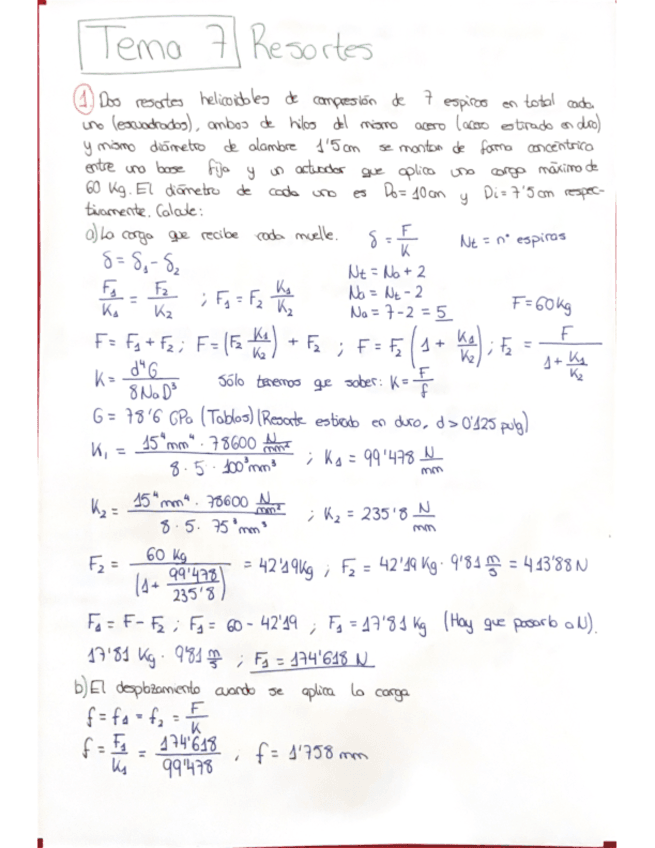 Tema 7 Resortes
1. Dos resortes helicoidales de compresión de 7 espiras en total cada
uno (escuadrados), ambos de hilos del mismo acero (acero estirado en duro)
y mismo diámetro de alambre 1'5cm se montan de forma concéntrica
entre una base fija y un actuador que aplica una carga máxima de
60 Kg. El diámetro de cada uno es Do=10cm y Di=7'5cm respec-
tivamente. Calcule:
a) La carga que recibe cada muelle. δ = F/K Nt = nº espiras
δ = δ1 - δ2
F1/K1 = F2/K2 ; F1 = F2 K1/K2
Nt = Na + 2
Na = Nt - 2
Na = 7-2 = 5
F=60kg
F = F1 + F2 ; F = (F2 K1/K2) + F2 ; F = F2 (1 + K1/K2) ; F2 = F/(1 + K1/K2)
K = d⁴G/8NaD³ Sólo tenemos que saber: K = F/f
G = 78'6 GPa (Tablas) (Resorte estirado en duro, d > 0'125 pulg)
K1 = 15⁴mm⁴ · 78600 N/mm² / 8 · 5 · 100³mm³ ; K1 = 99'478 N/mm
K2 = 15⁴mm⁴ · 78600 N/mm² / 8 · 5 · 75³mm³ ; K2 = 235'8 N/mm
F2 = 60 Kg / (1 + 99'478/235'8) = 42'19Kg ; F2 = 42'19 Kg · 9'81 m/s = 413'88N
F1 = F - F2 ; F1 = 60 - 42'19 ; F1 = 17'81 Kg (Hay que pasarlo a N).
17'81 Kg · 9'81 m/s ; F1 = 174'618 N
b) El desplazamiento cuando se aplica la carga
f = f1 = f2 = F/K
f = F1/K1 = 174'618/99'478 ; f = 1'758 mm